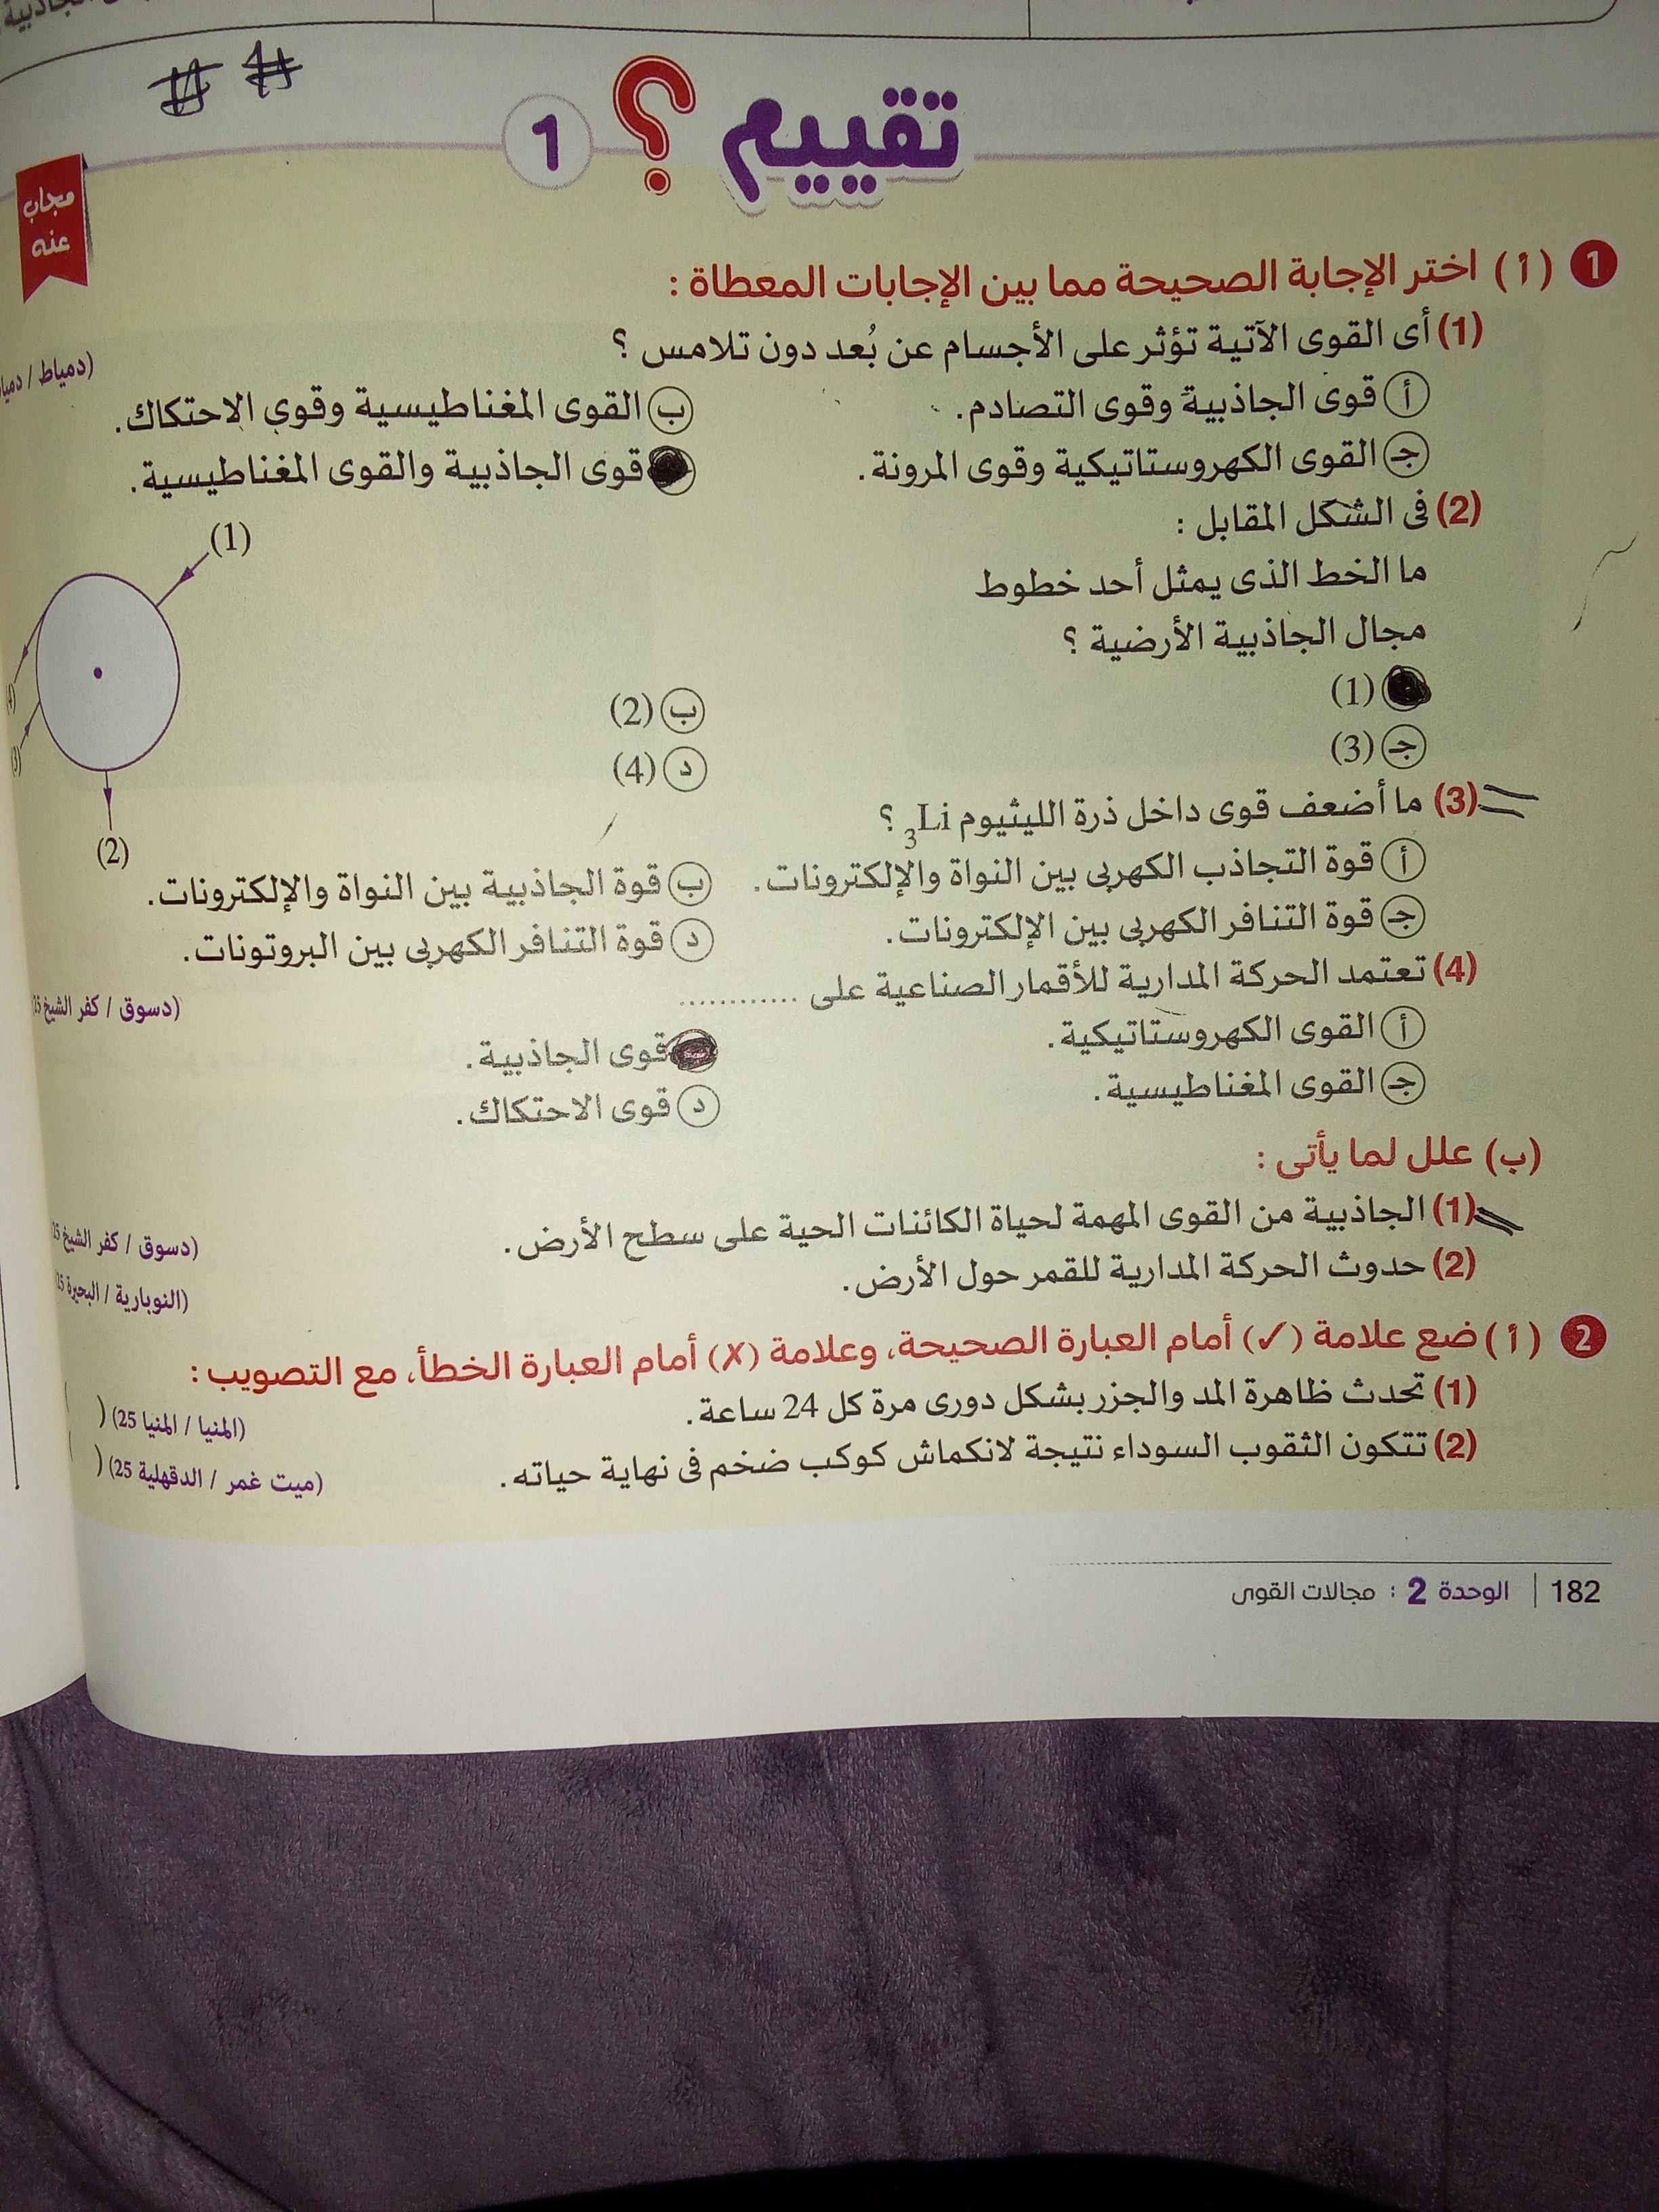 تقييم ؟ 1
مجاب
عنه
1 (أ) اختر الإجابة الصحيحة مما بين الإجابات المعطاة :
(1) أى القوى الآتية تؤثر على الأجسام عن بُعد دون تلامس ؟
(دمياط / دميا
أ قوى الجاذبية وقوى التصادم.
ب القوى المغناطيسية وقوى الاحتكاك.
ج القوى الكهروستاتيكية وقوى المرونة.
قوى الجاذبية والقوى المغناطيسية.
(2) فى الشكل المقابل :
ما الخط الذى يمثل أحد خطوط
مجال الجاذبية الأرضية ؟
(1)
ب (2)
ج (3)
د (4)
(1)
(4)
(3)
(2)
(3) ما أضعف قوى داخل ذرة الليثيوم ₃Li ؟
أ قوة التجاذب الكهربى بين النواة والإلكترونات.
ب قوة الجاذبية بين النواة والإلكترونات.
ج قوة التنافر الكهربى بين الإلكترونات.
د قوة التنافر الكهربى بين البروتونات.
(4) تعتمد الحركة المدارية للأقمار الصناعية على ............
(دسوق / كفر الشيخ 25
أ القوى الكهروستاتيكية.
قوى الجاذبية.
ج القوى المغناطيسية.
د قوى الاحتكاك.
(ب) علل لما يأتى :
(1) الجاذبية من القوى المهمة لحياة الكائنات الحية على سطح الأرض.
(دسوق / كفر الشيخ 25
(2) حدوث الحركة المدارية للقمر حول الأرض.
(النوبارية / البحيرة 25
2 (أ) ضع علامة (✓) أمام العبارة الصحيحة، وعلامة (✗) أمام العبارة الخطأ، مع التصويب :
(1) تحدث ظاهرة المد والجزر بشكل دورى مرة كل 24 ساعة.
(المنيا / المنيا 25) ( )
(2) تتكون الثقوب السوداء نتيجة لانكماش كوكب ضخم فى نهاية حياته.
(ميت غمر / الدقهلية 25) ( )
182 | الوحدة 2 : مجالات القوى